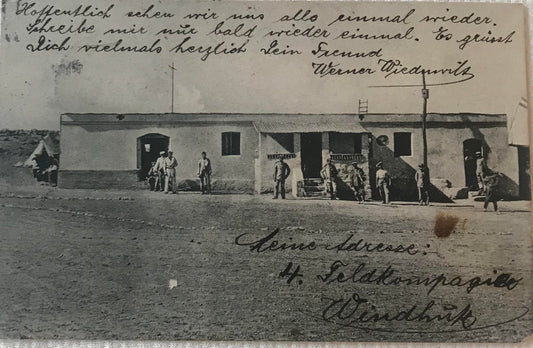 Hoffentlich sehen wir uns allo einmal wieder.
Schreibe mir nur bald wieder einmal. Es grüsst
Dich vielmals herzlich Dein Freund
Werner Wiedmvilt
Meine Adresse:
4. Feldkompagnie
Windhuk